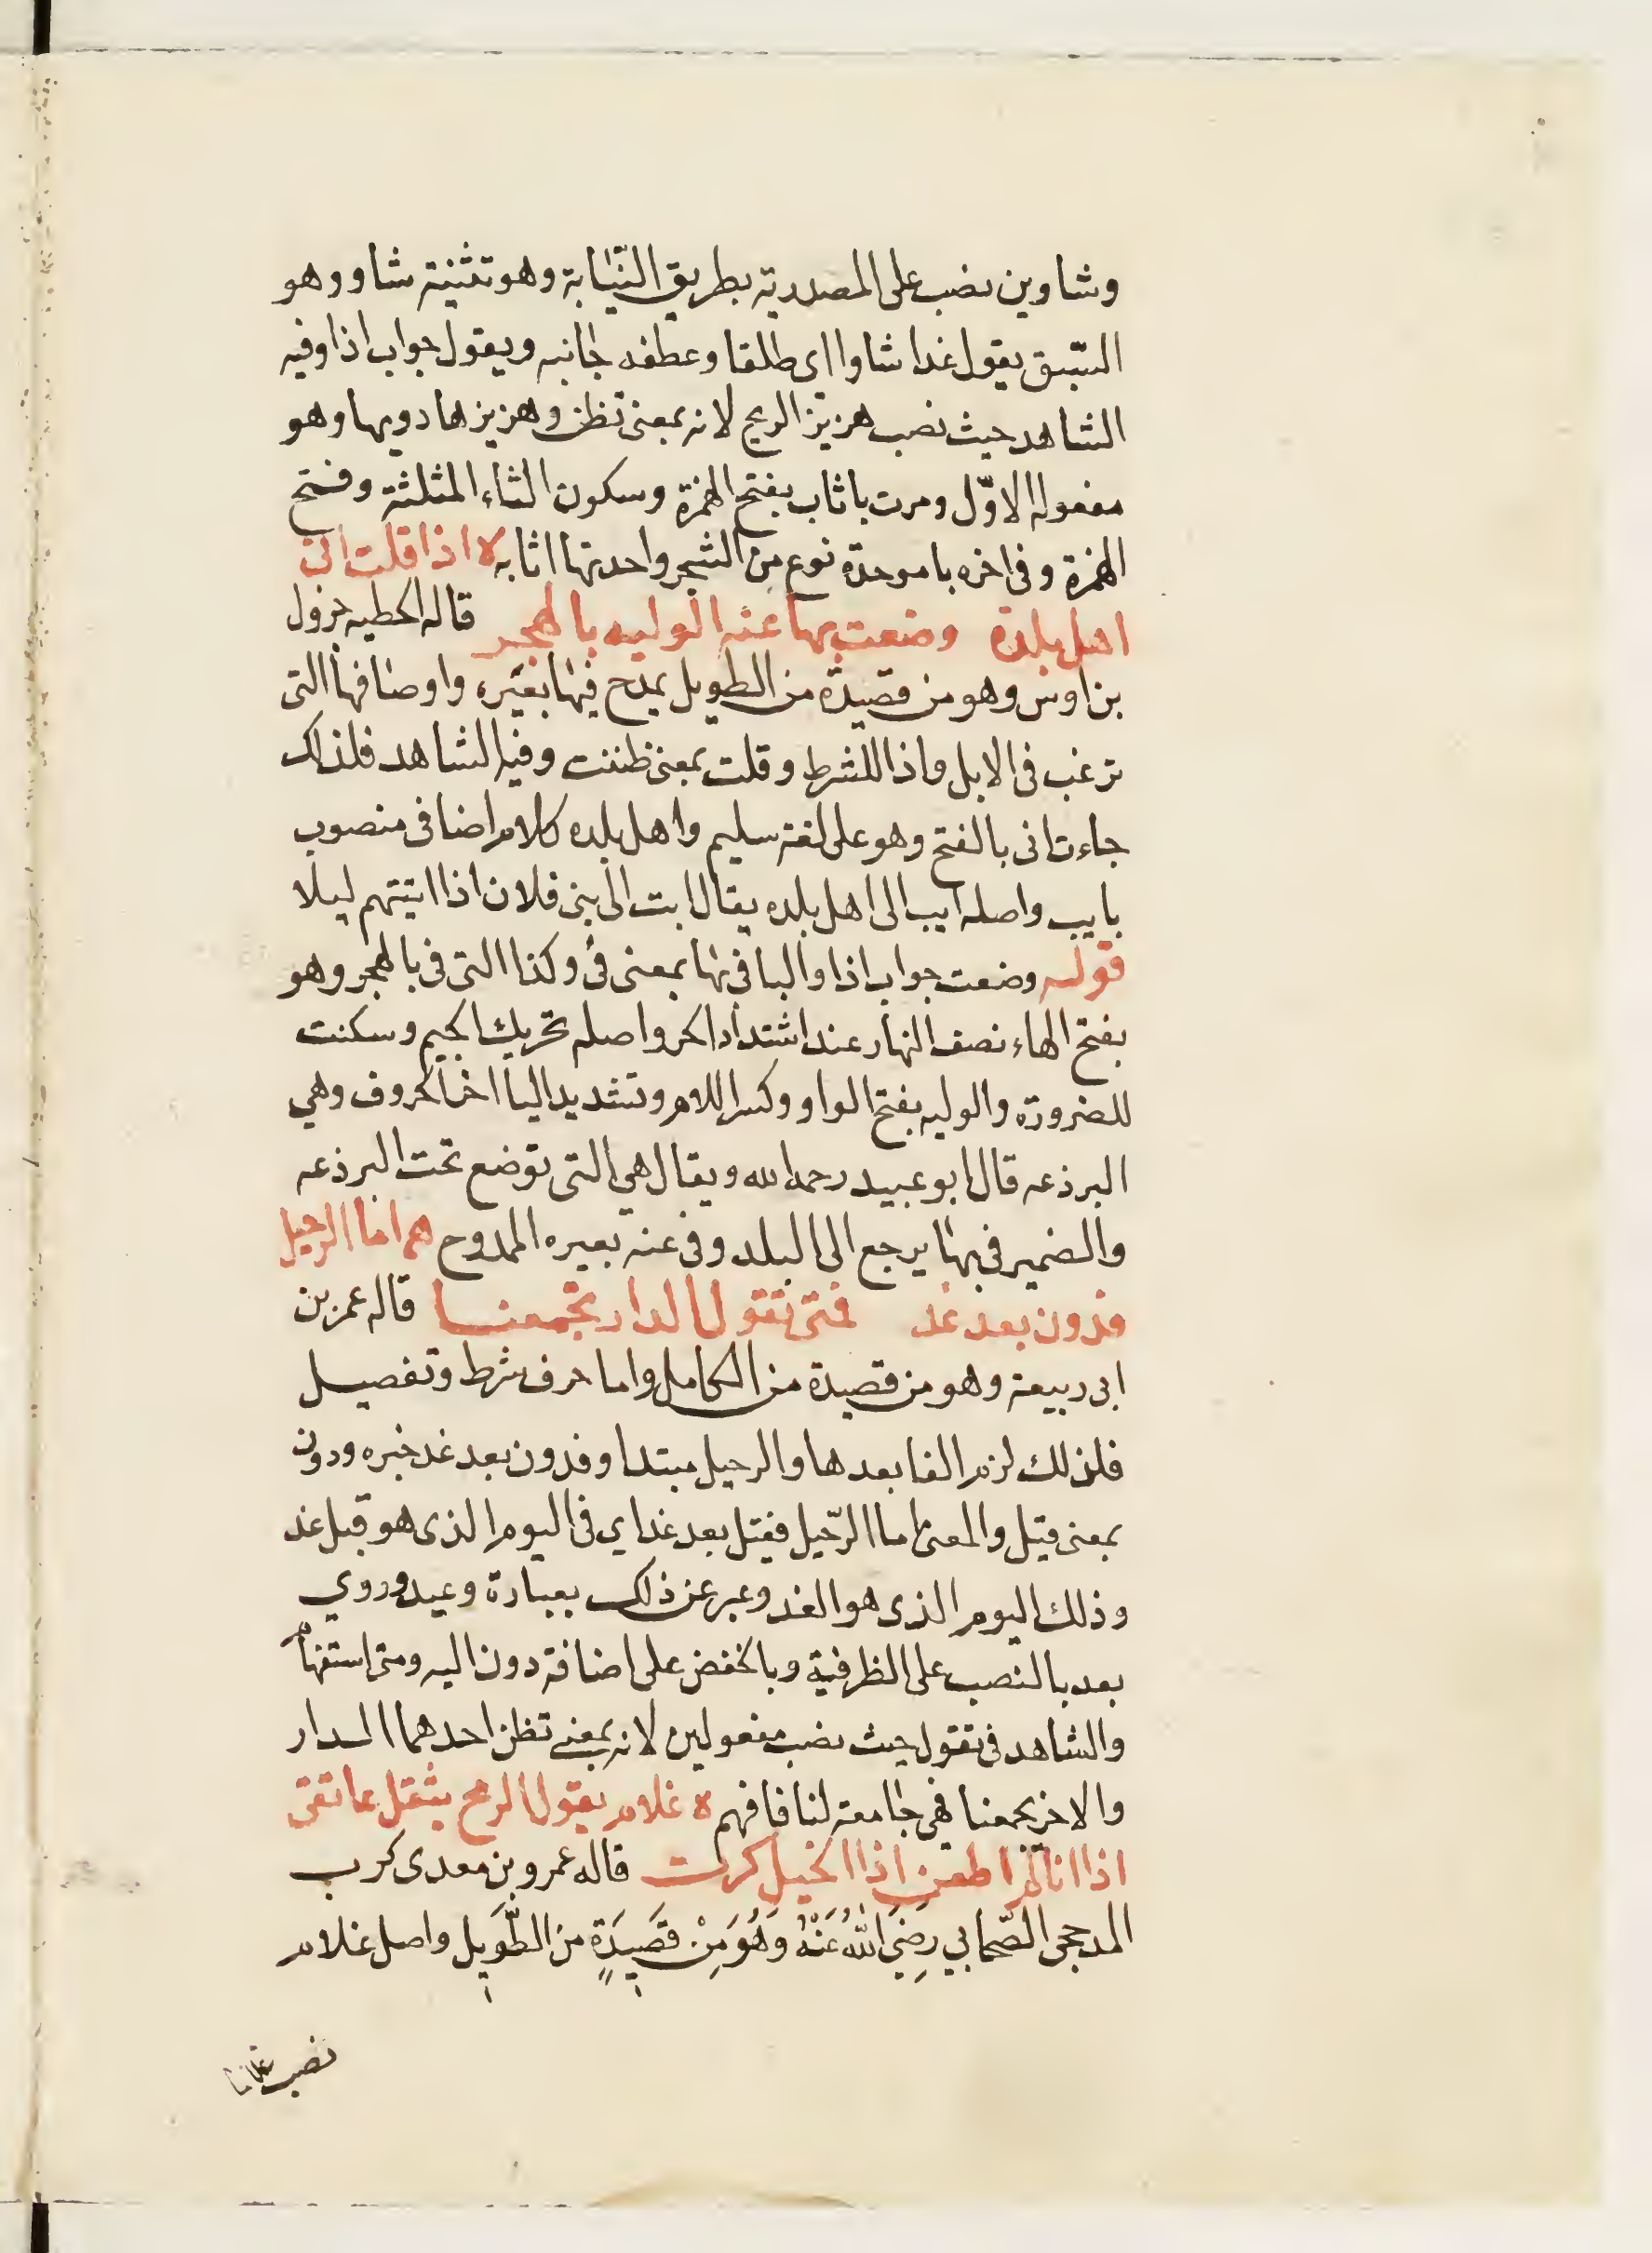 وشاوين نصب على المصدرية بطريق النيابة وهو تثنية شاو وهو
السّبق يقول غدا شاوا اى طلقا وعطفه جانبه ويقول جواب اذا وفيه
الشاهد حيث نصب هزيز الريح لانه بمعنى تظن وهزيزها دويها وهو
مفعوله الاوّل ومرت باثاب بفتح الهمزة وسكون الثاء المثلثة وفتح
الهمزة وفى اخره با موحدة نوع من الشجر واحدتها اثابه ه اذا قلت انى
اهل بلدة وضعت بها عنه الوليه بالهجر قاله الحطيه جرول
بن اوس وهو من قصيدة من الطويل يمدح فيها بعيره واوصافها التى
ترغب فى الابل واذا للشرط وقلت بمعنى ظننت وفيه الشاهد فلذلك
جاءت انى بالفتح وهو على لغة سليم واهل بلده كلام اضافى منصوب
بايب واصله ايب الى اهل بلده يقال ابت الى بنى فلان اذا اتيتهم ليلا
قوله وضعت جواب اذا والبا فى بها بمعنى فى وكذا التى فى بالهجر وهو
بفتح الهاء نصف النهار عند اشتداد الحر واصله تحريك الجيم وسكنت
للضرورة والوليه بفتح الواو وكسر اللام وتشديد اليا اخر الحروف وهي
البرذعه قال ابو عبيد رحمه الله ويقال هي التى توضع تحت البرذعه
والضمير فى بها يرجع الى البلد وفى عنه بعيره الممدوح ه اما الرحيل
فدون بعد غد فمتى تقول الدار تجمعنا قاله عمر بن
ابى ربيعة وهو من قصيدة من الكامل واما حرف شرط وتفصيل
فلذلك لزم الفا بعدها والرحيل مبتدا وفدون بعد غد خبره ودون
بمعنى قبل والمعنى اما الرّحيل فقبل بعد غد اي فى اليوم الذى هو قبل غد
وذلك اليوم الذى هو الغد وعبر عن ذلك بعبارة وعيد وروي
بعد بالنصب على الظرفية وبالخفض على اضافة دون اليه ومتى استفهام
والشاهد فى تقول حيث نصب مفعولين لانه بمعنى تظن احدهما الدار
والاخر يجمعنا فهى جامعة لنا فافهم ه علام يقول الرمح يثقل عاتقى
اذا انا لم اطعن اذا الخيل كرت قاله عمرو بن معدى كرب
المدحجى الصّحابي رَضِيَ اللّهُ عَنْهُ وَهُوَ مِنْ قَصِيدَةٍ من الطَّوِيل واصل علام
نصب